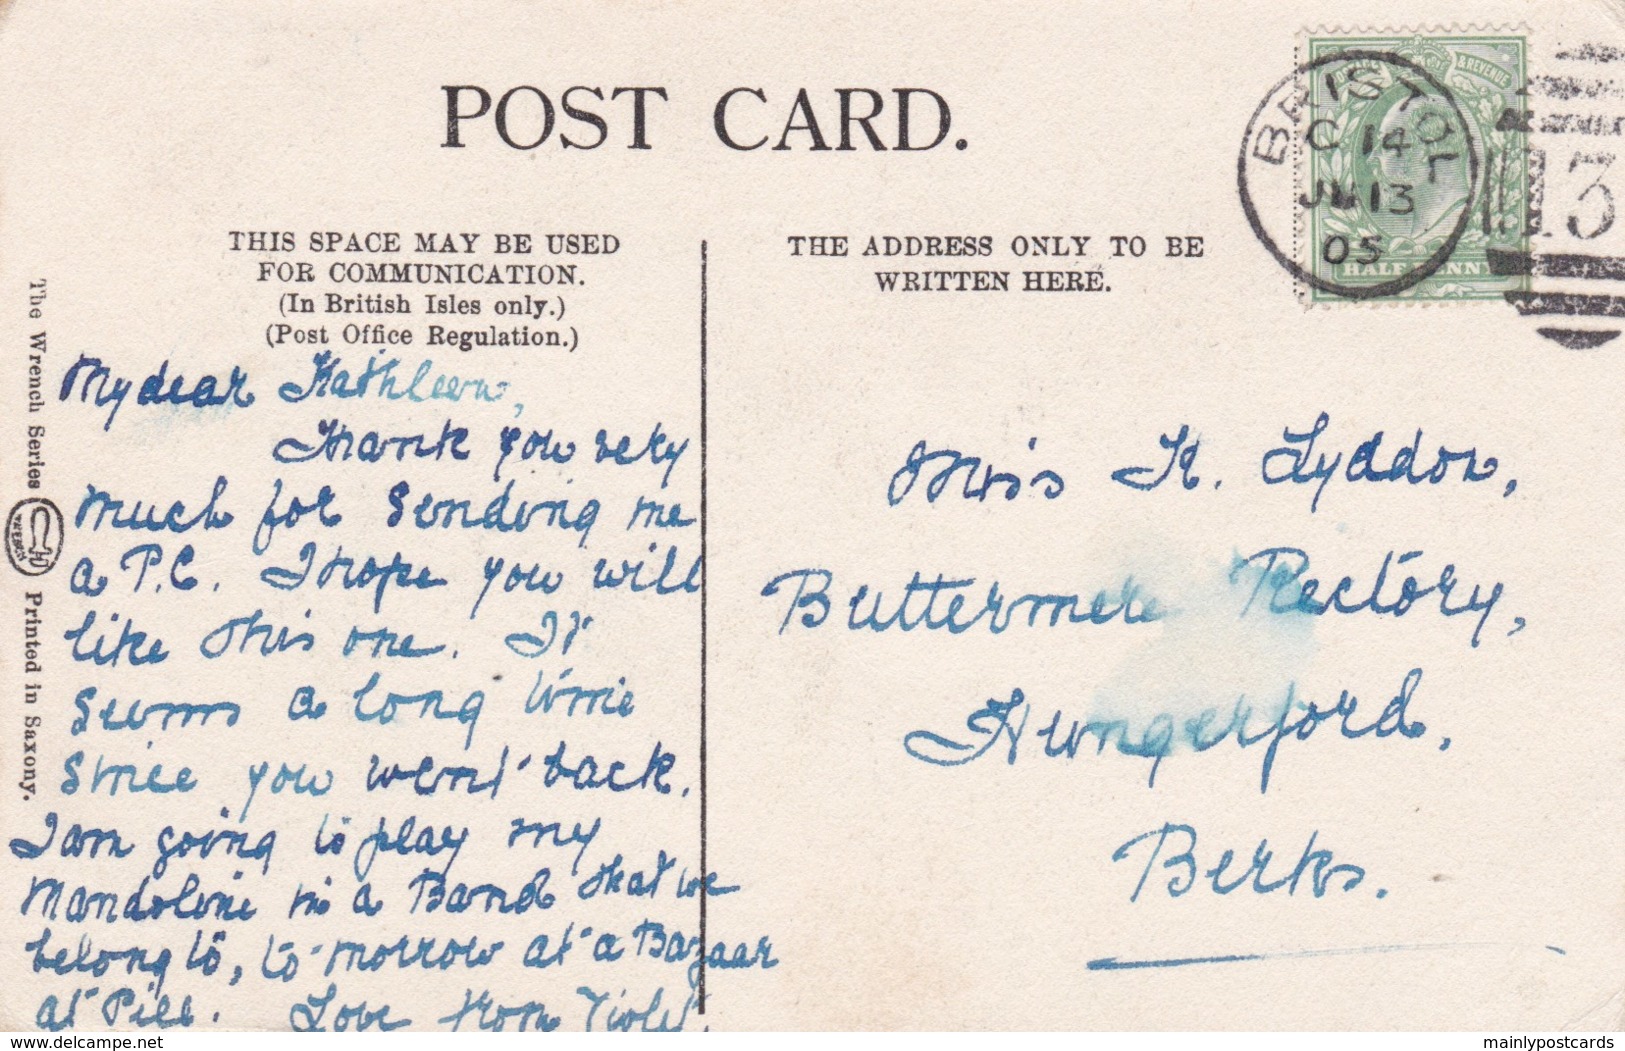 POST CARD.
BRISTOL
C 14
JU 13
05
POSTAGE & REVENUE
HALFPENNY
13
THIS SPACE MAY BE USED
FOR COMMUNICATION.
(In British Isles only.)
(Post Office Regulation.)
THE ADDRESS ONLY TO BE
WRITTEN HERE.
The Wrench Series Printed in Saxony.
My dear Kathleen,
Thank you very
much for sending me
a P.C. I hope you will
like this one. It
seems a long time
since you went back.
I am going to play my
Mandoline in a Band that we
belong to, to-morrow at a Bazaar
at Pill. Love from Violet.
Miss K. Lyddon,
Buttermere Rectory,
Hungerford,
Berks.
delcampe.net
mainlypostcards